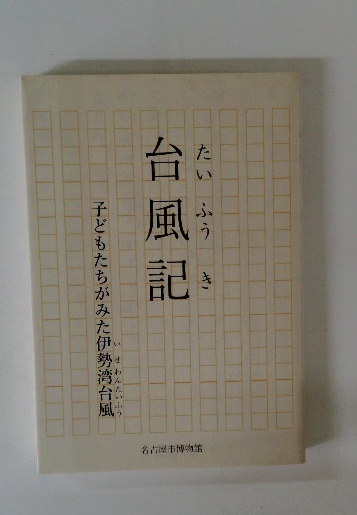 台風記
たいふうき
子どもたちがみた伊勢湾台風
いせわんたいふう
名古屋市博物館